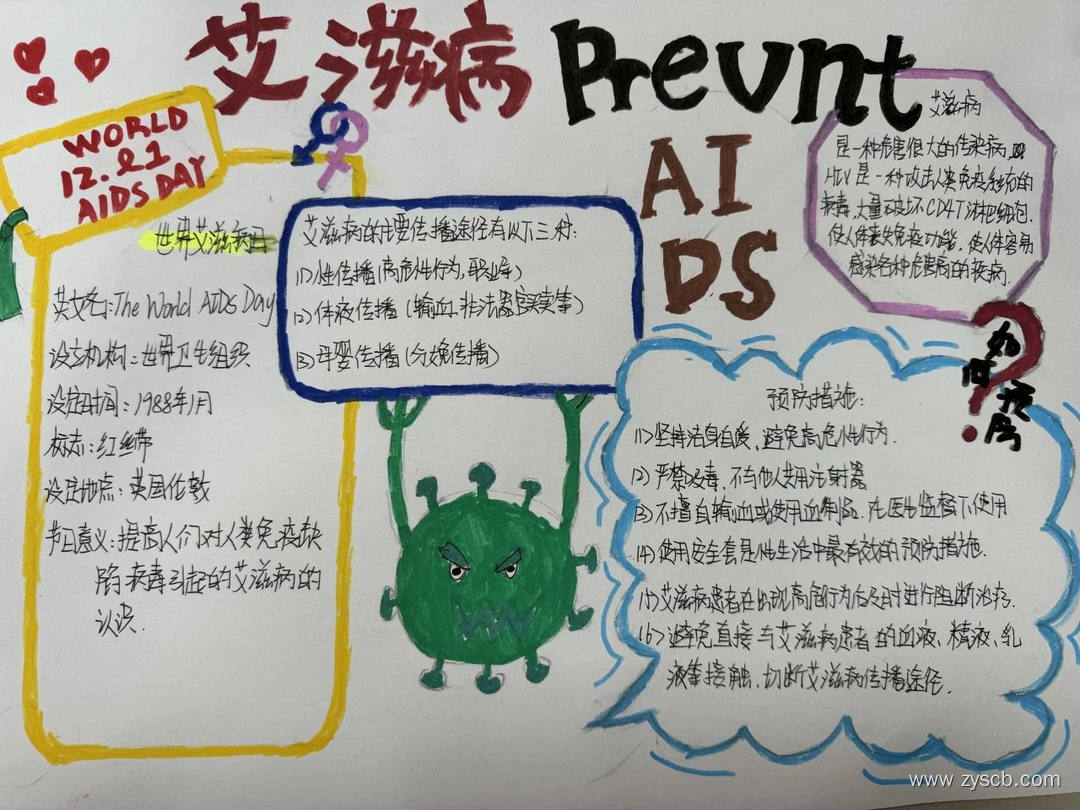 艾滋病 Prevnt
AI
DS
WORLD
12. 1
AIDS DAY
世界艾滋病日
英文名:The World AIDS Day
设立机构:世界卫生组织
设定时间:1988年1月
标志:红丝带
设定地点:英国伦敦
节日意义:提高人们对人类免疫缺
陷病毒引起的艾滋病的
认识.
艾滋病的主要传播途径有以下三种:
(1)性传播(高危性行为,职业等)
(2)体液传播(输血,非法器官买卖等)
(3)母婴传播(分娩传播)
艾滋病
是一种危害很大的传染病,
HIV是一种攻击人类免疫系统的
病毒,大量破坏CD4T淋巴细胞.
使人体丧失免疫功能,使人体容易
感染各种危害病的疾病.
如何
预防
预防措施:
(1)坚持洁身自爱,避免高危性行为.
(2)严禁吸毒,不与他人共用注射器
(3)不擅自输血或使用血制品,在医生监督下使用
(4)使用安全套是性生活中最有效的预防措施.
(5)艾滋病患者在出现高危行为后及时进行阻断治疗.
(6)避免直接与艾滋病患者的血液,精液,乳
液等接触,切断艾滋病传播途径.
www.zyscb.com